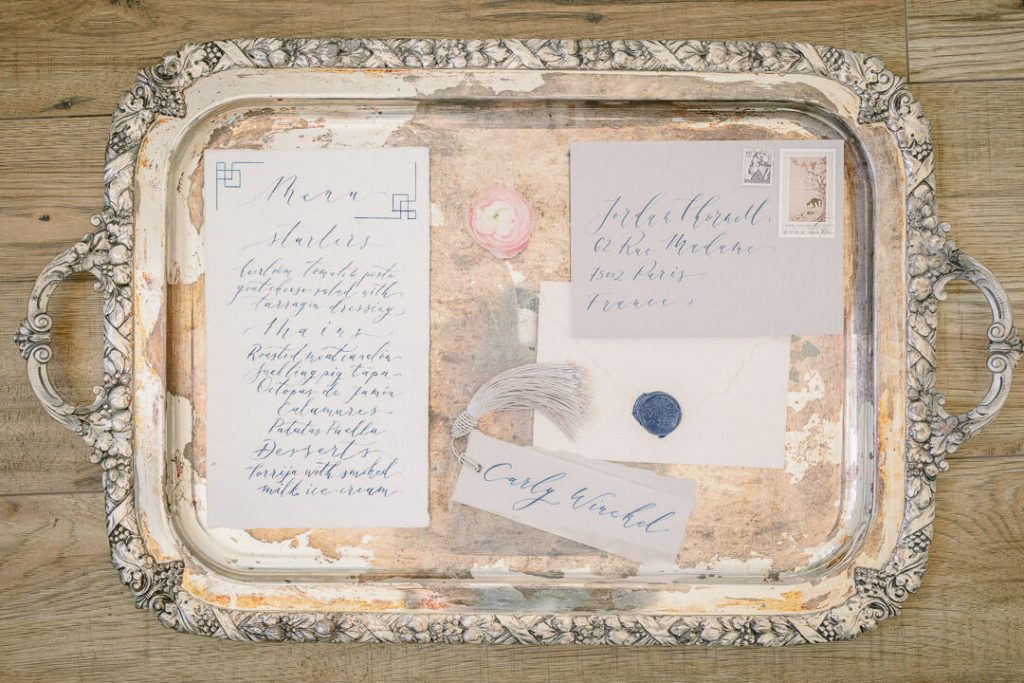 Menu
starters
heirloom tomato & pesto
goat cheese salad with
tarragin dressing
Mains
Roasted
Suckling pig tapa
Octopus de Jamón
Calamares
Patatas Paella
Desserts
Torrija with smoked
milk ice-cream
Jordan Thornell,
62 Rue Madame
75002 Paris
France
Carly Winchel